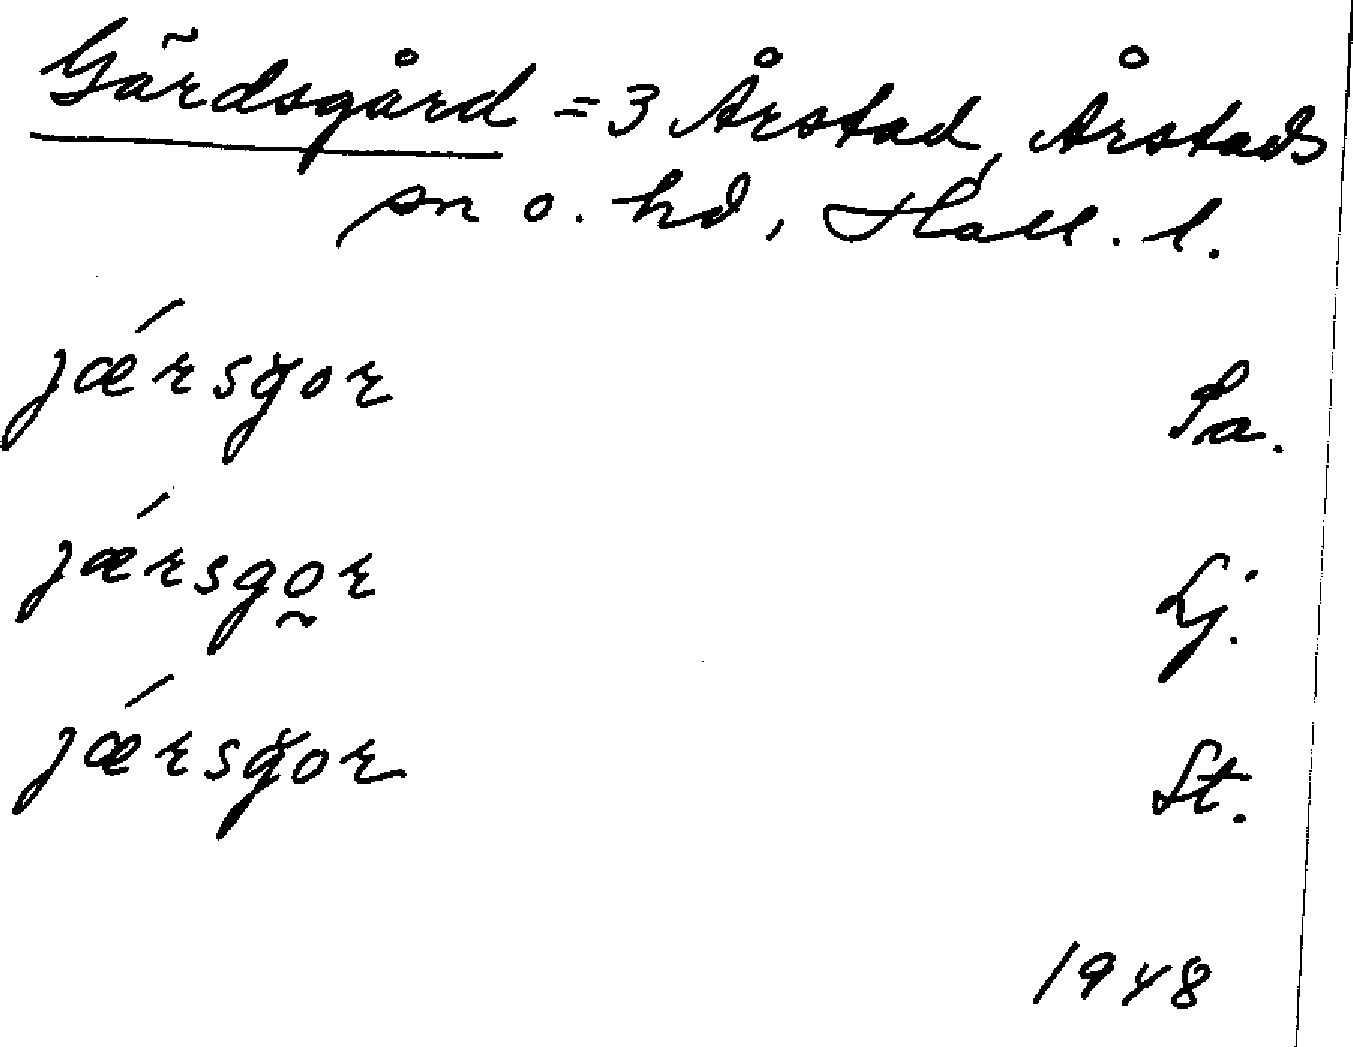 Gärdsgård = 3 Årstad, Årstads
sn o. hd, Hall. l.
jǽrsgor Sa.
jǽrsgo̰r Lj.
jǽrsgor St.
1948